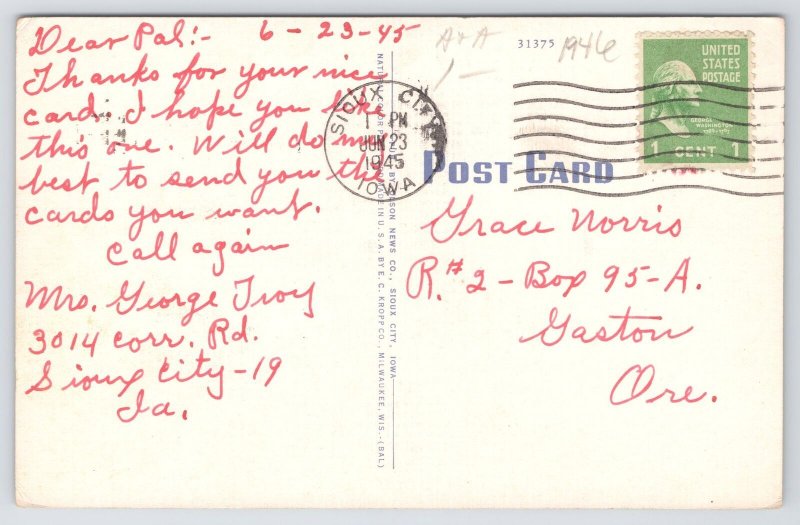 Dear Pal:- 6-23-45
Thanks for your nice
card. I hope you like
this one. Will do my
best to send you the
cards you want.
Call again
Mrs. George Troy
3014 Corr. Rd.
Sioux City-19
Ia.
NATURAL COLOR
NEWS CO., SIOUX CITY, IOWA
MADE IN U.S.A. BY E. C. KROPP CO., MILWAUKEE, WIS.-(BAL)
A&A
1-
31375
1946
SIOUX CITY
1 PM
JUN 23
1945
IOWA
UNITED
STATES
POSTAGE
GEORGE
WASHINGTON
1 CENT 1
POST CARD
Grace Norris
R.# 2 - Box 95-A.
Gaston
Ore.